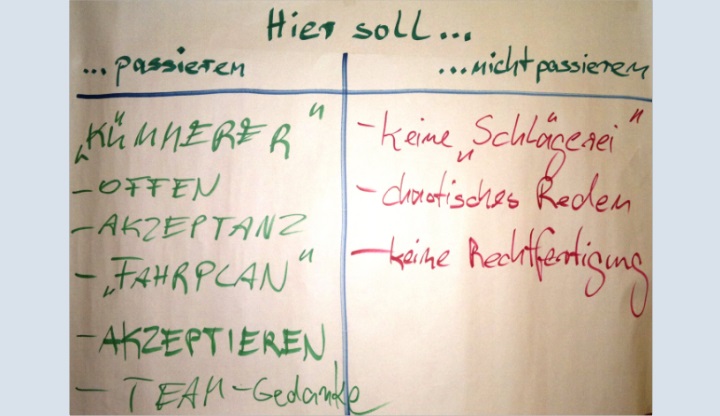 Hier soll...
...passieren
...nicht passieren
„KÜMMERER"
- OFFEN
- AKZEPTANZ
- „FAHRPLAN"
- AKZEPTIEREN
- TEAM-Gedanke
- keine „Schlägerei"
- chaotisches Reden
- keine Rechtfertigung